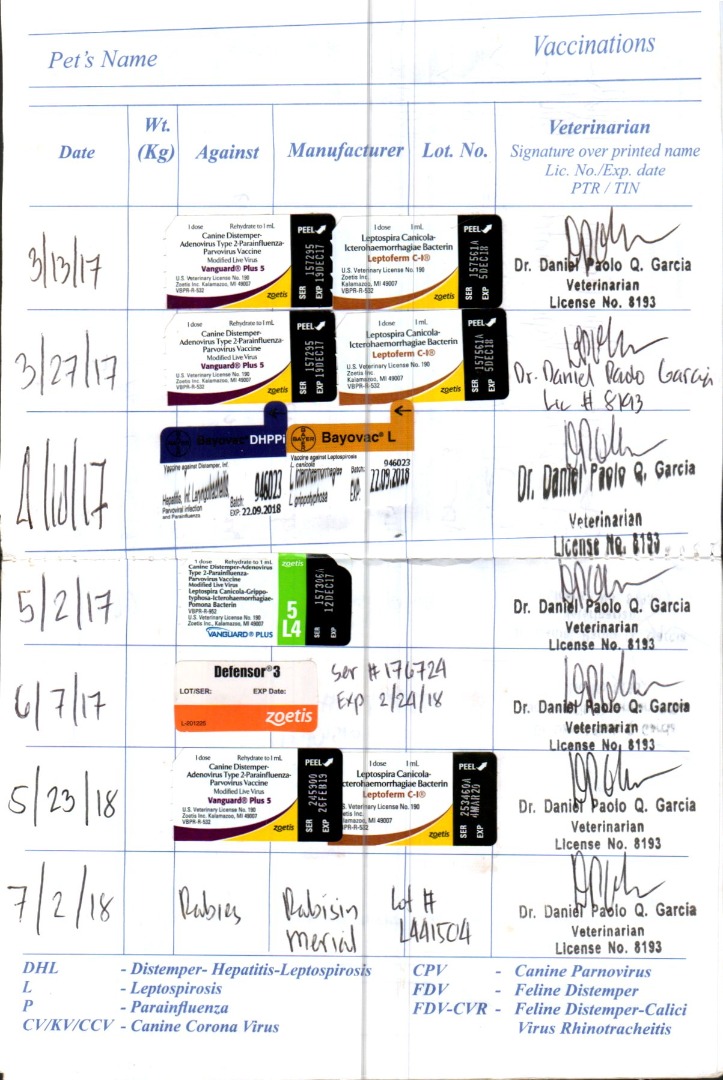 Pet's Name
Vaccinations
Date
Wt.
(Kg)
Against
Manufacturer
Lot. No.
Veterinarian
Signature over printed name
Lic. No./Exp. date
PTR / TIN
3/13/17
1 dose Rehydrate to 1 mL
Canine Distemper-
Adenovirus Type 2-Parainfluenza-
Parvovirus Vaccine
Modified Live Virus
Vanguard® Plus 5
U.S. Veterinary License No. 190
Zoetis Inc. Kalamazoo, MI 49007
VBPR-R-532
zoetis
PEEL
SER 157295
EXP 19DEC17
1 dose 1 mL
Leptospira Canicola-
Icterohaemorrhagiae Bacterin
Leptoferm C-I®
U.S. Veterinary License No. 190
Zoetis Inc.
Kalamazoo, MI 49007
VBPR-R-532
zoetis
PEEL
SER 157561A
EXP 5DEC18
Dr. Daniel Paolo Q. Garcia
Veterinarian
License No. 8193
3/27/17
1 dose Rehydrate to 1 mL
Canine Distemper-
Adenovirus Type 2-Parainfluenza-
Parvovirus Vaccine
Modified Live Virus
Vanguard® Plus 5
U.S. Veterinary License No. 190
Zoetis Inc. Kalamazoo, MI 49007
VBPR-R-532
zoetis
PEEL
SER 157295
EXP 19DEC17
1 dose 1 mL
Leptospira Canicola-
Icterohaemorrhagiae Bacterin
Leptoferm C-I®
U.S. Veterinary License No. 190
Zoetis Inc
Kalamazoo, MI 49007
VBPR-R-532
zoetis
PEEL
SER 157561A
EXP 5DEC18
Dr. Daniel Paolo Garcia
Lic # 8193
4/10/17
BAYER
Bayovac® DHPPi
Vaccine against Distemper, Inf.
Hepatitis, Inf. Laryngotracheitis,
Parvoviral infection
and Parainfluenza
Batch: 946023
EXP: 22.09.2018
BAYER
Bayovac® L
Vaccine against Leptospirosis
L. canicola
L. icterohaemorrhagiae
L. grippotyphosa
Batch: 946023
EXP: 22.09.2018
Dr. Daniel Paolo Q. Garcia
Veterinarian
License No. 8193
5/2/17
1 dose Rehydrate to 1 mL
Canine Distemper-Adenovirus
Type 2-Parainfluenza-
Parvovirus Vaccine
Modified Live Virus
Leptospira Canicola-Grippo-
typhosa-Icterohaemorrhagiae-
Pomona Bacterin
VBPR-R-952
U.S. Veterinary License No. 190
Zoetis Inc., Kalamazoo, MI 49007
VANGUARD® PLUS
zoetis
5
L4
SER 157306A
EXP 12DEC17
Dr. Daniel Paolo Q. Garcia
Veterinarian
License No. 8193
6/7/17
Defensor®3
LOT/SER: EXP Date:
zoetis
Ser # 176724
Exp 2/24/18
Dr. Daniel Paolo Q. Garcia
Veterinarian
License No. 8193
5/23/18
1 dose Rehydrate to 1 mL
Canine Distemper-
Adenovirus Type 2-Parainfluenza-
Parvovirus Vaccine
Modified Live Virus
Vanguard® Plus 5
U.S. Veterinary License No. 190
Zoetis Inc. Kalamazoo, MI 49007
VBPR-R-532
zoetis
PEEL
SER 225900
EXP 26FEB19
1 dose 1 mL
Leptospira Canicola-
Icterohaemorrhagiae Bacterin
Leptoferm C-I®
S. Veterinary License No. 190
etis Inc.
Kalamazoo, MI 49007
BPR-R-532
zoetis
PEEL
SER 253460A
EXP 4MAR20
Dr. Daniel Paolo Q. Garcia
Veterinarian
License No. 8193
7/2/18
Rabies
Rabisin
Merial
Lot #
L441504
Dr. Daniel Paolo Q. Garcia
Veterinarian
License No. 8193
DHL - Distemper- Hepatitis-Leptospirosis
L - Leptospirosis
P - Parainfluenza
CV/KV/CCV - Canine Corona Virus
CPV - Canine Parnovirus
FDV - Feline Distemper
FDV-CVR - Feline Distemper-Calici
Virus Rhinotracheitis